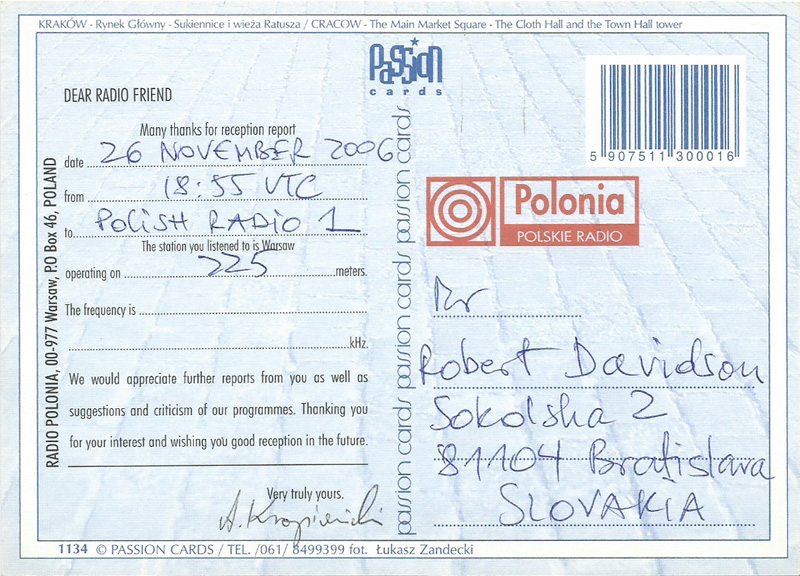 KRAKÓW - Rynek Główny - Sukiennice i wieża Ratusza / CRACOW - The Main Market Square - The Cloth Hall and the Town Hall tower
Passion
cards
DEAR RADIO FRIEND
Many thanks for reception report
date 26 NOVEMBER 2006
from 18:55 UTC
to POLISH RADIO 1
The station you listened to is Warsaw
operating on 225 meters.
The frequency is
kHz.
We would appreciate further reports from you as well as
suggestions and criticism of our programmes. Thanking you
for your interest and wishing you good reception in the future.
Very truly yours.
RADIO POLONIA, 00-977 Warsaw, P.O Box 46, POLAND
passion cards passion cards passion cards passion cards
5 907511 300016
Polonia
POLSKIE RADIO
Mr
Robert Davidson
Sokolska 2
81104 Bratislava
SLOVAKIA
1134 © PASSION CARDS / TEL. /061/ 8499399 fot. Łukasz Zandecki